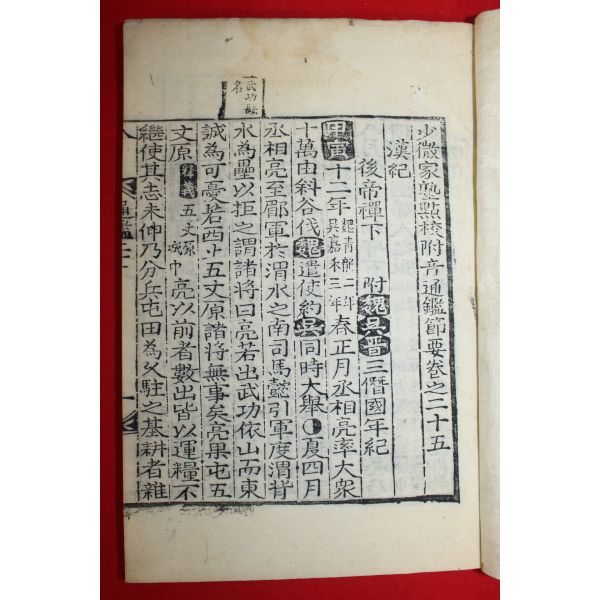 少微家塾點校附音通鑑節要卷之二十五
漢紀
後帝禪下 附魏吳晋三僭國年紀
甲寅十二年魏青龍二年吳嘉禾三年春正月丞相亮率大衆
十萬由斜谷伐魏遣使約吳同時大擧○夏四月
丞相亮至郿軍於渭水之南司馬懿引軍度渭背
水為壘以拒之謂諸將曰亮若出武功依山而東
誠為可憂若西上五丈原諸將無事矣亮果屯五
丈原釋義五丈原亮以前者數出皆以運糧不
繼使其志未伸乃分兵屯田為久駐之基耕者雜
武功縣名
通鑑二十